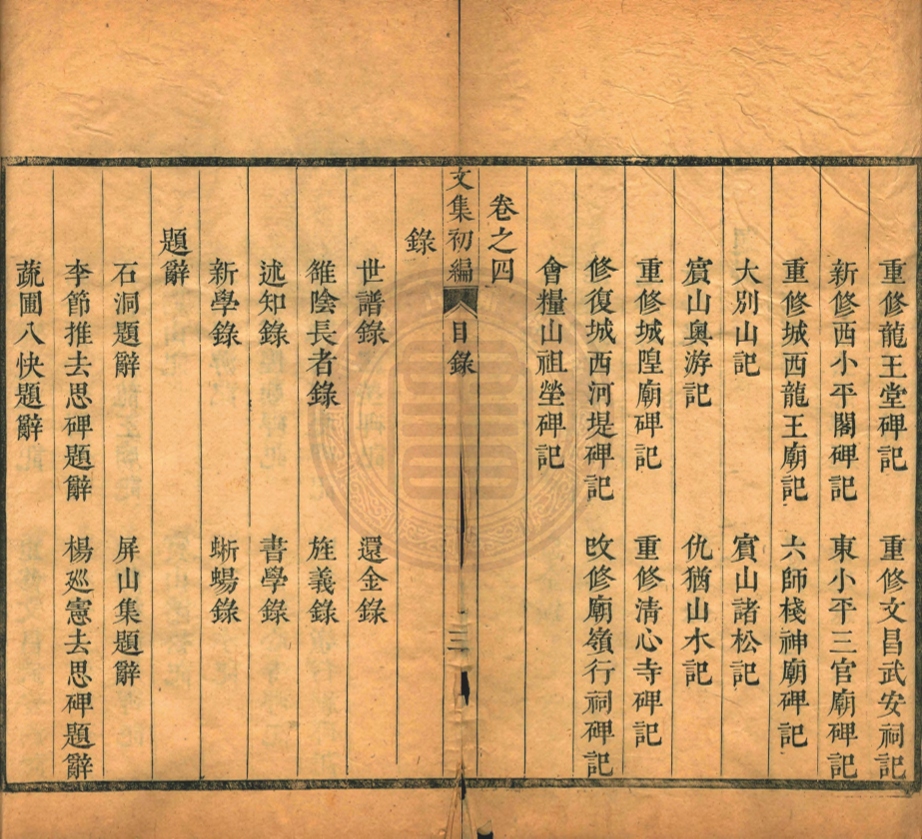 重修龍王堂碑記 重修文昌武安祠記
新修西小平閣碑記 東小平三官廟碑記
重修城西龍王廟記 六師棧神廟碑記
大別山記 賓山諸松記
賔山奥游記 仇猶山水記
重修城隍廟碑記 重修清心寺碑記
修復城西河堤碑記 改修廟嶺行祠碑記
會糧山祖塋碑記
卷之四
文集初編 目錄 三
錄
世譜錄 還金錄
雒陰長者錄 旌義錄
述知錄 書學錄
新學錄 蜥蜴錄
題辭
石洞題辭 屏山集題辭
李節推去思碑題辭 楊廵憲去思碑題辭
蔬圃八快題辭